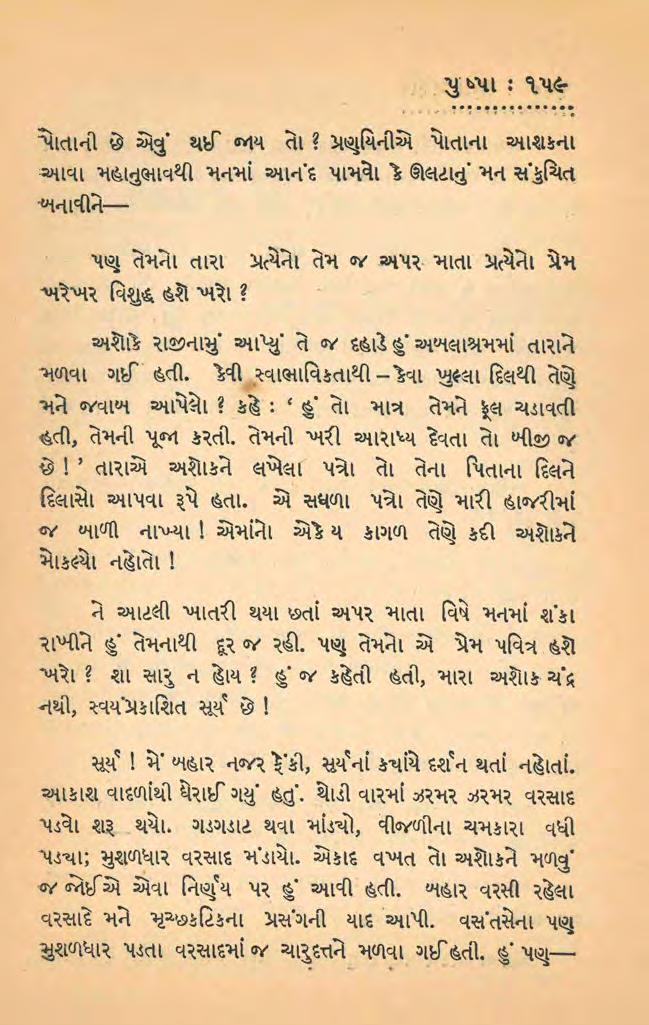 પુષ્પા : ૧૫૯
પોતાની છે એવું થઈ જાય તો ? પ્રણયિનીએ પોતાના આશકના
આવા મહાનુભાવથી મનમાં આનંદ પામવો કે ઊલટાનું મન સંકુચિત
બનાવીને—
પણ તેમનો તારા પ્રત્યેનો તેમ જ અપર માતા પ્રત્યેનો પ્રેમ
ખરેખર વિશુદ્ધ હશે ખરો ?
અશોકે રાજીનામું આપ્યું તે જ દહાડે હું અબલાશ્રમમાં તારાને
મળવા ગઈ હતી. કેવી સ્વાભાવિકતાથી – કેવા ખુલ્લા દિલથી તેણે
મને જવાબ આપેલો ? કહે : ‘ હું તો માત્ર તેમને ફૂલ ચડાવતી
હતી, તેમની પૂજા કરતી. તેમની ખરી આરાધ્ય દેવતા તો બીજી જ
છે ! ’ તારાએ અશોકને લખેલા પત્રો તો તેના પિતાના દિલને
દિલાસો આપવા રૂપે હતા. એ સઘળા પત્રો તેણે મારી હાજરીમાં
જ બાળી નાખ્યા ! એમાંનો એકે ય કાગળ તેણે કદી અશોકને
મોકલ્યો નહોતો !
ને આટલી ખાતરી થયા છતાં અપર માતા વિષે મનમાં શંકા
રાખીને હું તેમનાથી દૂર જ રહી. પણ તેમનો એ પ્રેમ પવિત્ર હશે
ખરો ? શા સારુ ન હોય ? હું જ કહેતી હતી, મારા અશોક ચંદ્ર
નથી, સ્વયંપ્રકાશિત સૂર્ય છે !
સૂર્ય ! મેં બહાર નજર ફેંકી, સૂર્યનાં કયાંયે દર્શન થતાં નહોતાં.
આકાશ વાદળાંથી ઘેરાઈ ગયું હતું. થોડી વારમાં ઝરમર ઝરમર વરસાદ
પડવો શરૂ થયો. ગડગડાટ થવા માંડયો, વીજળીના ચમકારા વધી
પડયા; મુશળધાર વરસાદ મંડાયો. એકાદ વખત તો અશોકને મળવું
જ જોઈએ એવા નિર્ણય પર હું આવી હતી. બહાર વરસી રહેલા
વરસાદે મને મૃચ્છકટિકના પ્રસંગની યાદ આપી. વસંતસેના પણ
મુશળધાર પડતા વરસાદમાં જ ચારુદત્તને મળવા ગઈ હતી. હું પણ—